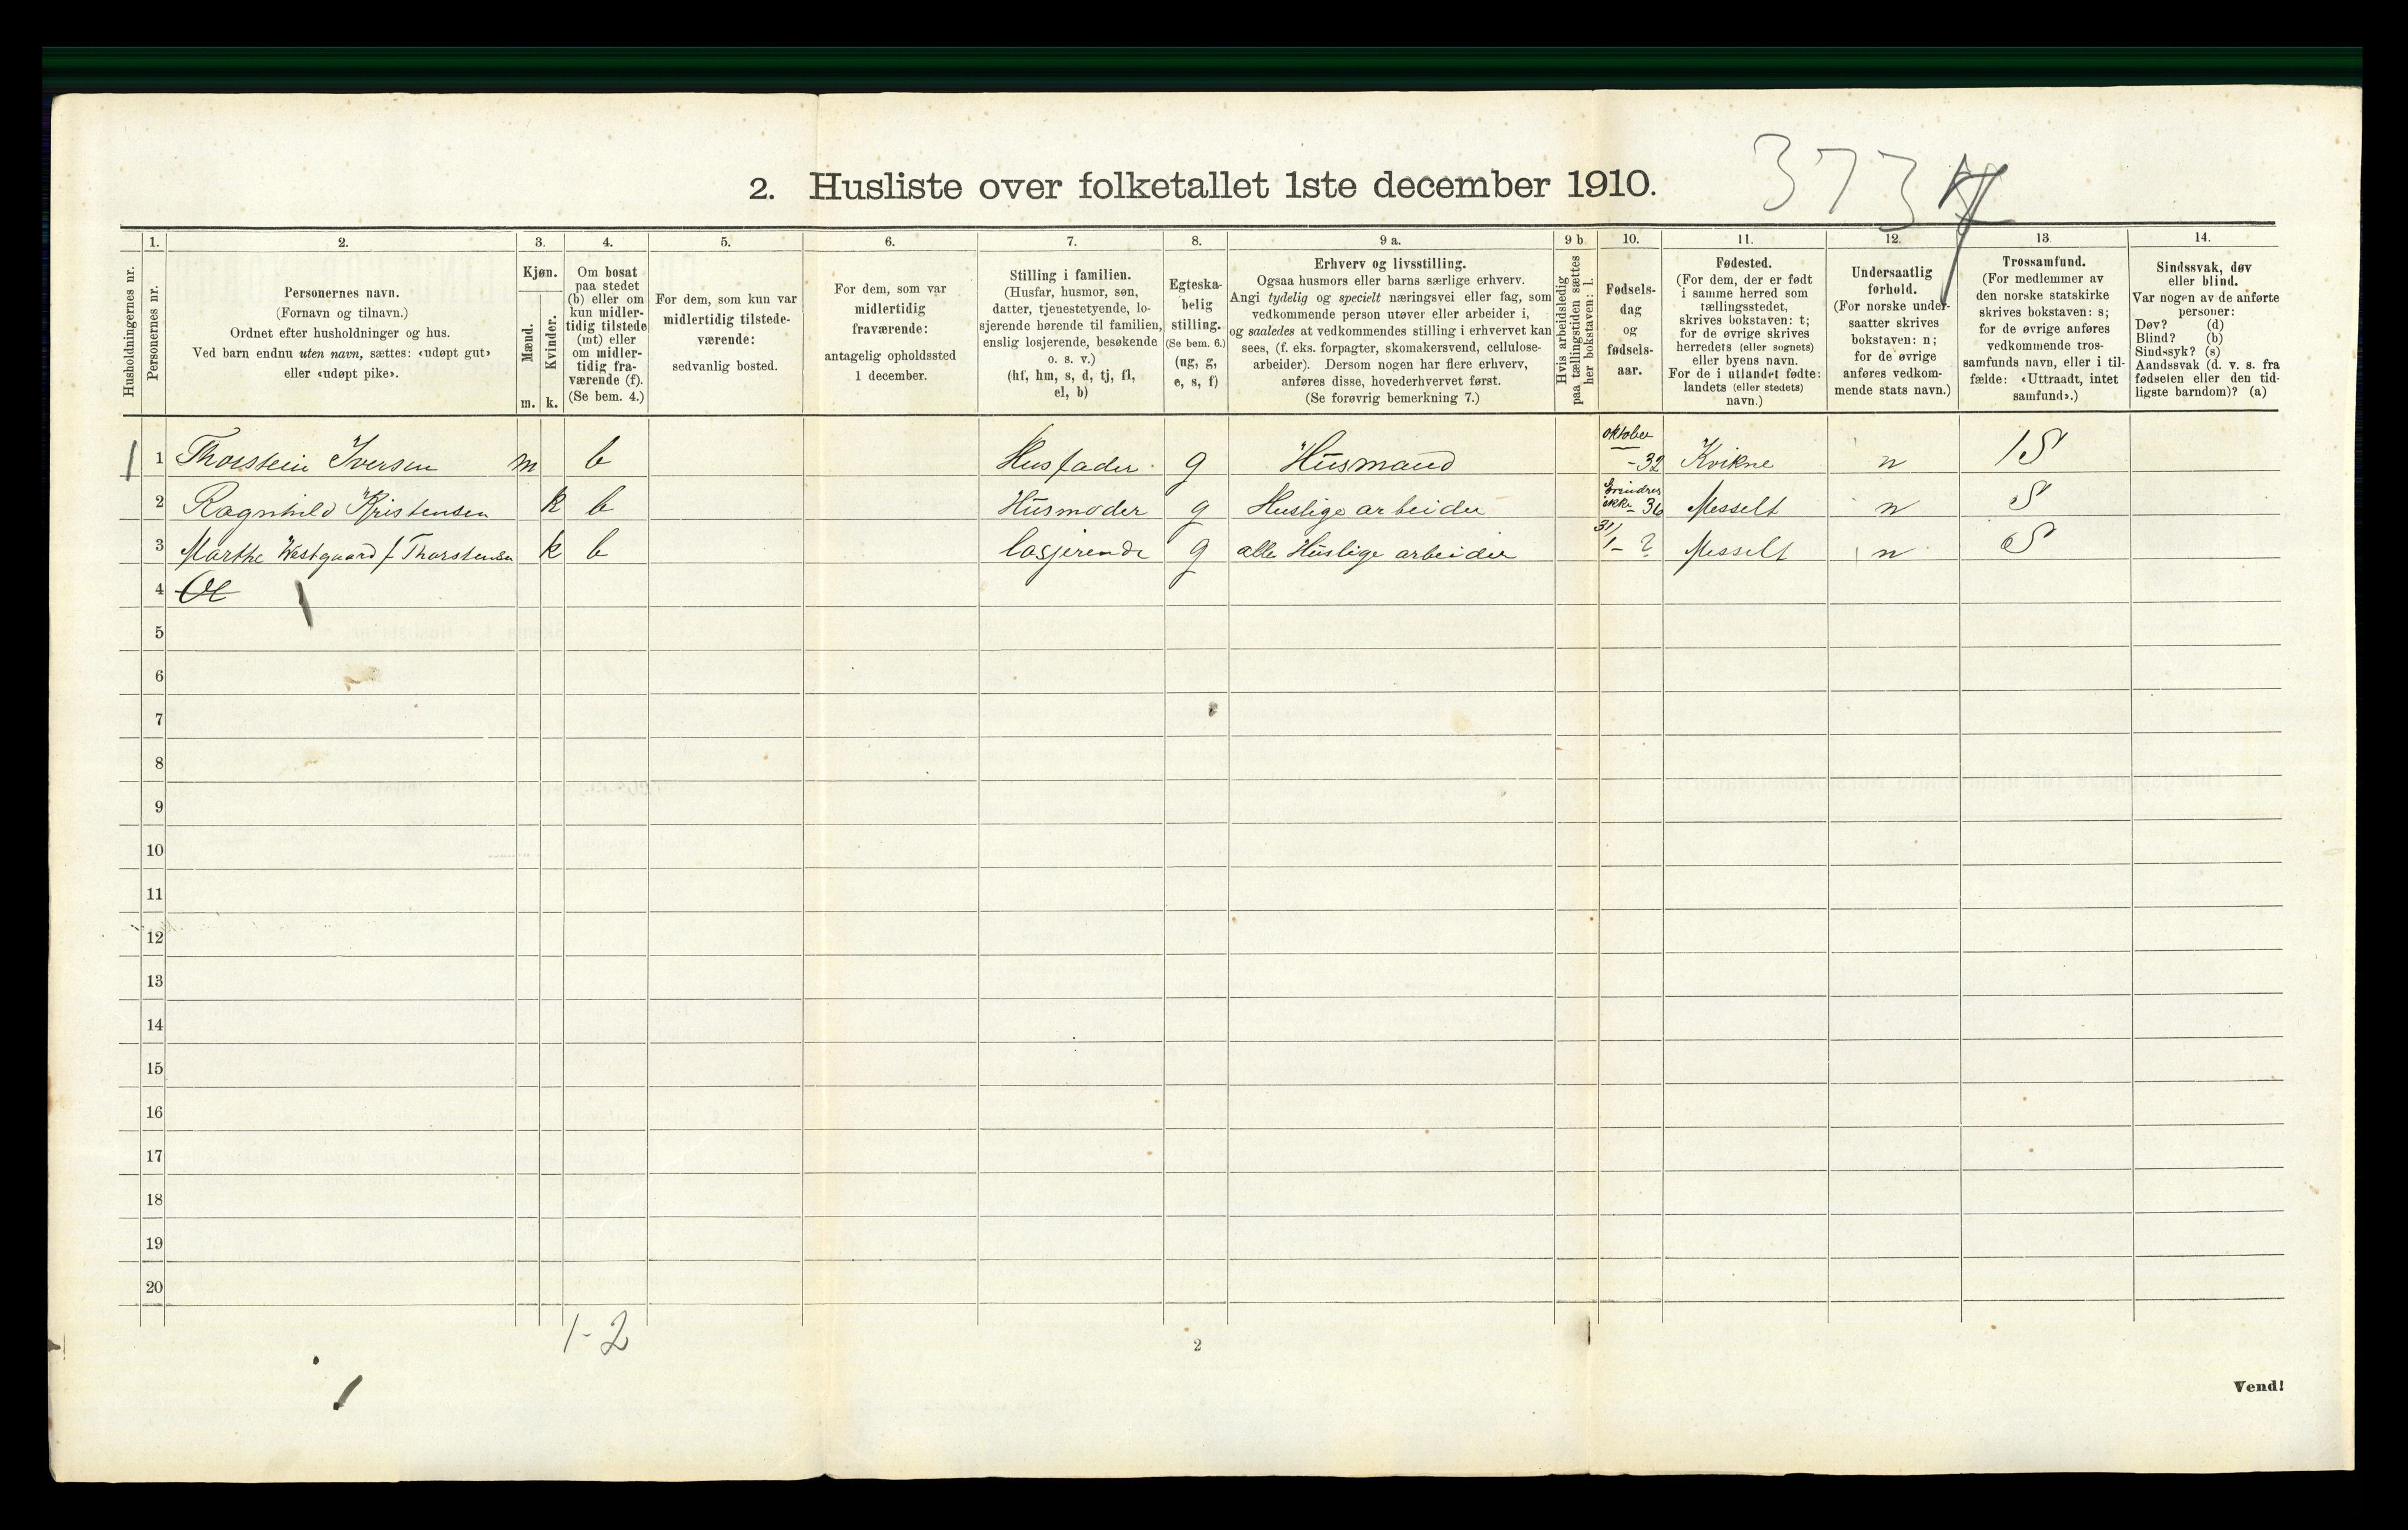 3734
2. Husliste over folketallet 1ste december 1910.
Husholdningernes nr.
1.
Personernes nr.
2.
Personernes navn.
(Fornavn og tilnavn.)
Ordnet efter husholdninger og hus.
Ved barn endnu uten navn, sættes: «udøpt gut»
eller «udøpt pike».
3.
Kjøn.
Mænd.
Kvinder.
m. k.
4.
Om bosat
paa stedet
(b) eller om
kun midler-
tidig tilstede
(mt) eller
om midler-
tidig fra-
værende (f).
(Se bem. 4.)
5.
For dem, som kun var
midlertidig tilstede-
værende:
sedvanlig bosted.
6.
For dem, som var
midlertidig
fraværende:
antagelig opholdssted
1 december.
7.
Stilling i familien.
(Husfar, husmor, søn,
datter, tjenestetyende, lo-
sjerende hørende til familien,
enslig losjerende, besøkende
o. s. v.)
(hf, hm, s, d, tj, fl,
el, b)
8.
Egteska-
belig
stilling.
(Se bem. 6.)
(ug, g,
e, s, f)
9 a.
Erhverv og livsstilling.
Ogsaa husmors eller barns særlige erhverv.
Angi tydelig og specielt næringsvei eller fag, som
vedkommende person utøver eller arbeider i,
og saaledes at vedkommendes stilling i erhvervet kan
sees, (f. eks. forpagter, skomakersvend, cellulose-
arbeider). Dersom nogen har flere erhverv,
anføres disse, hovederhvervet først.
(Se forøvrig bemerkning 7.)
9 b
Hvis arbeidsledig
paa tællingstiden sættes
her bokstaven: l.
10.
Fødsels-
dag
og
fødsels-
aar.
11.
Fødested.
(For dem, der er født
i samme herred som
tællingsstedet,
skrives bokstaven: t;
for de øvrige skrives
herredets (eller sognets)
eller byens navn.
For de i utlandet fødte:
landets (eller stedets)
navn.)
12.
Undersaatlig
forhold.
(For norske under-
saatter skrives
bokstaven: n;
for de øvrige
anføres vedkom-
mende stats navn.)
13
Trossamfund.
(For medlemmer av
den norske statskirke
skrives bokstaven: s;
for de øvrige anføres
vedkommende tros-
samfunds navn, eller i til-
fælde: «Uttraadt, intet
samfund».)
14.
Sindssvak, døv
eller blind.
Var nogen av de anførte
personer:
Døv? (d)
Blind? (b)
Sindssyk? (s)
Aandssvak (d. v. s. fra
fødselen eller den tid-
ligste barndom)? (a)
1 1 Thorstein Iversen m b Husfader g Husmand oktober - 32 Kvikne n S
2 Ragnhild Kristensen k b Husmoder g Huslige arbeider Erindres ikke - 36 Messelt n S
3 Marthe Westgaard f Thorstensen k b losjerende g alle Huslige arbeider 31/1 - ? Messelt n S
4
5
6
7
8
9
10
11
12
13
14
15
16
17
18
19
20
1-2
2
Vend!